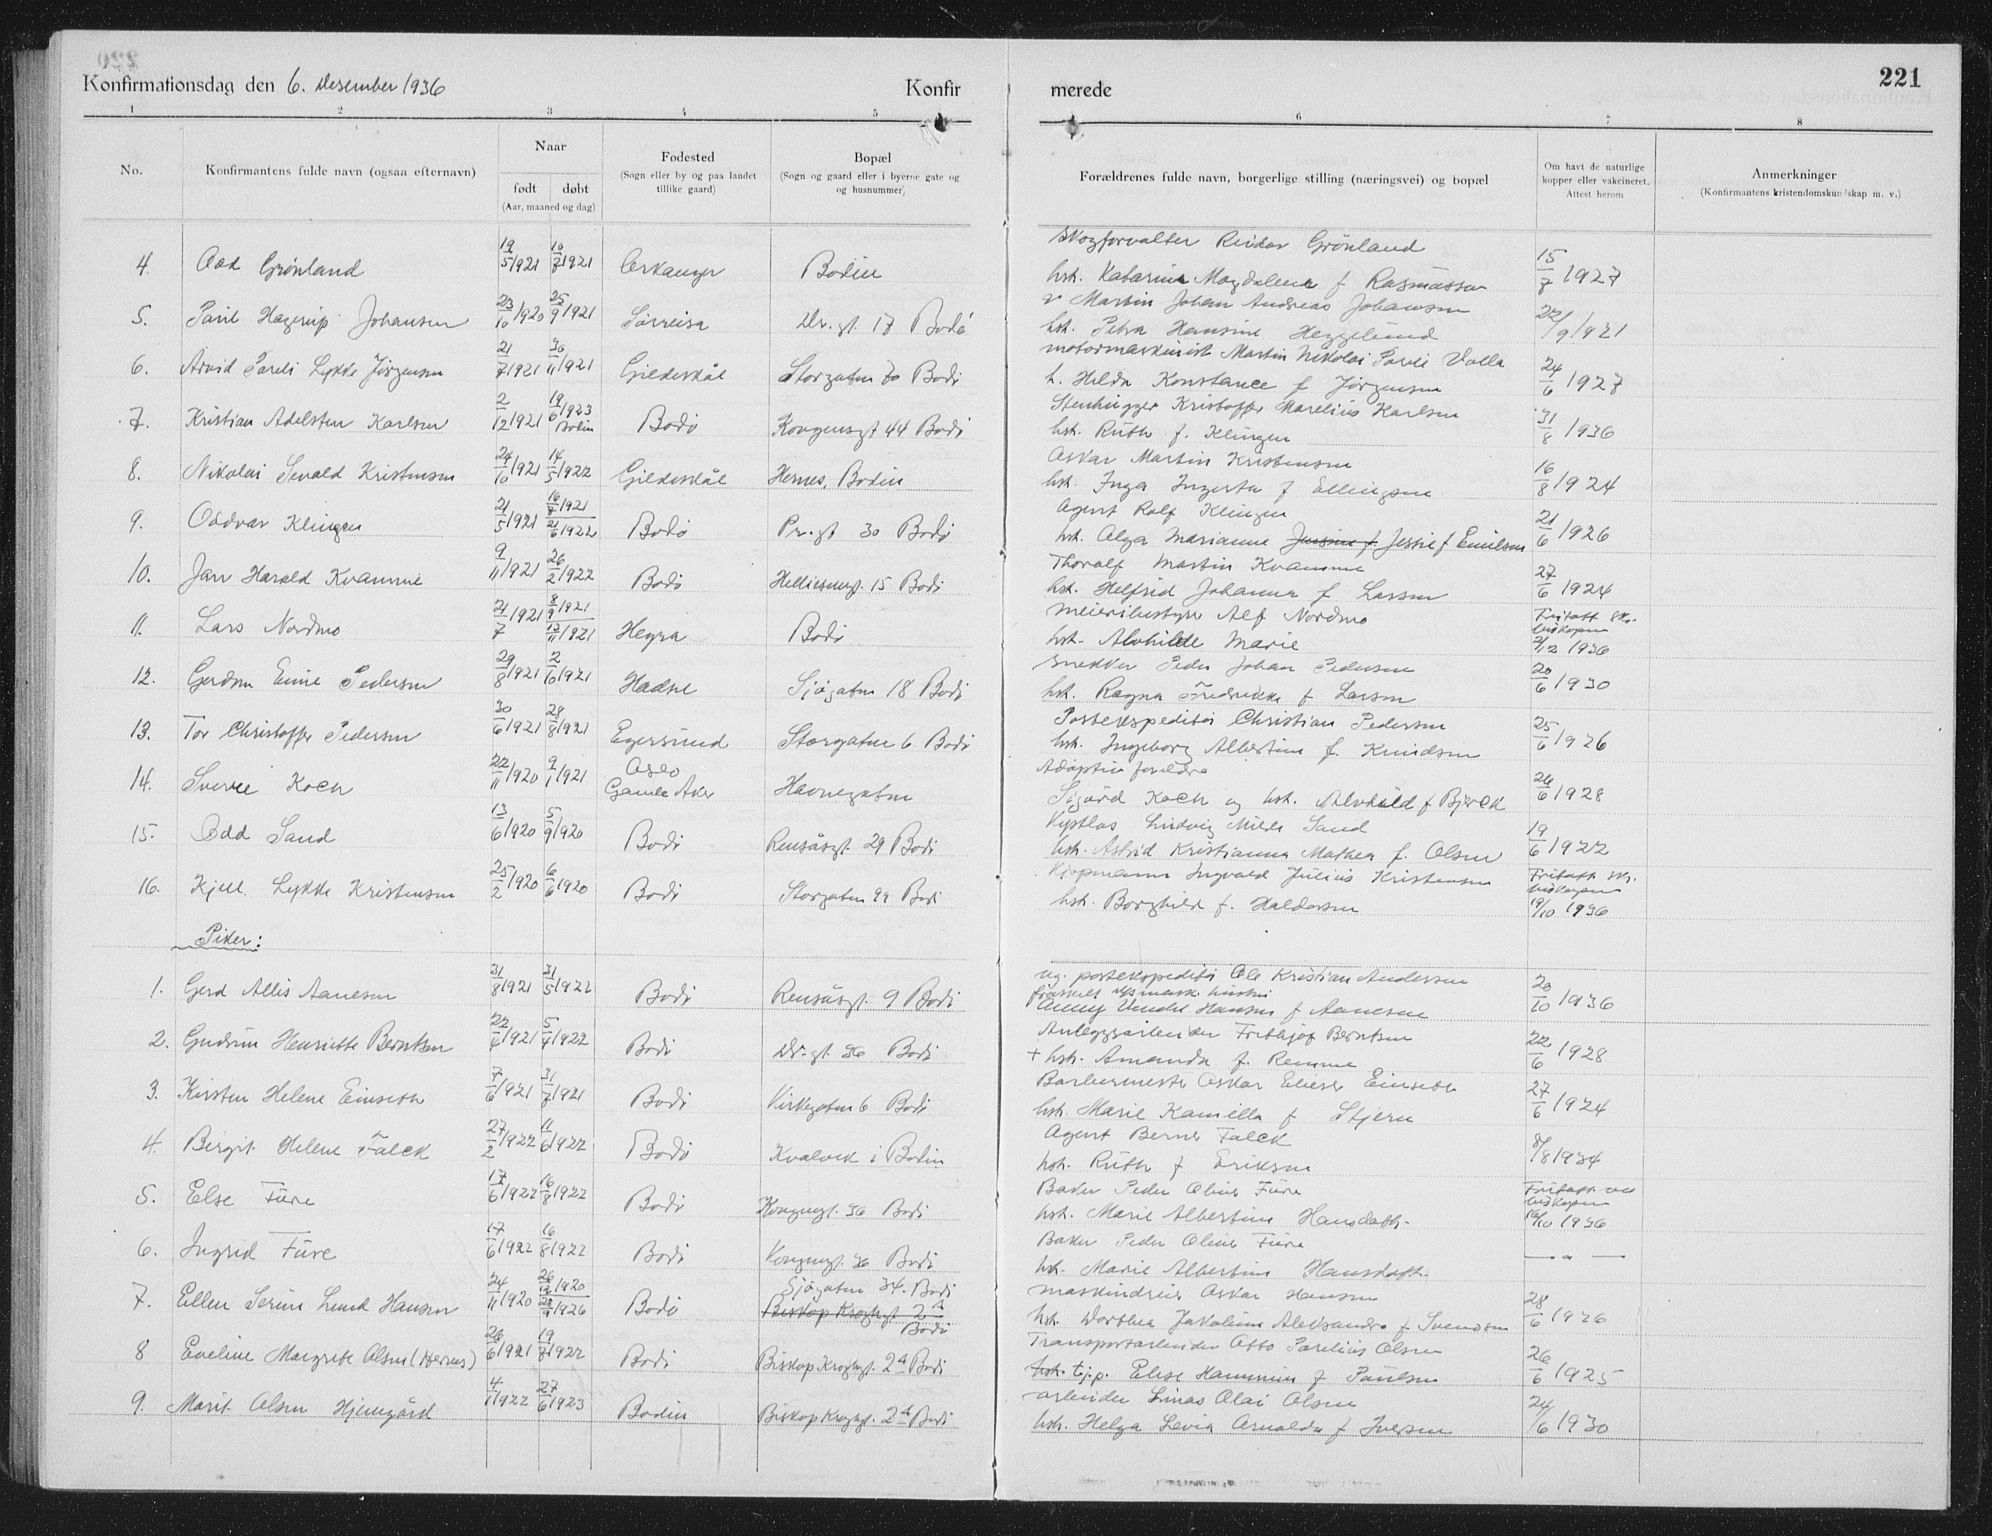 Konfirmationsdag den 6. Desember 1936
Konfir
merede
221
1 2 3 4 5 6 7 8
No.
Konfirmantens fulde navn (ogsaa efternavn)
Naar
født døbt
(Aar, maaned og dag)
Fødested
(Sogn eller by og paa landet
tillike gaard)
Bopæl
(Sogn og gaard eller i byerne gate og
og husnummer)
Forældrenes fulde navn, borgerlige stilling (næringsvei) og bopæl
Om havt de naturlige
kopper eller vakcineret.
Attest herom
Anmerkninger
(Konfirmantens kristendomskundskap m. v.)
Skogforvalter Reidar Grönland
4. Odd Grönland 19/5 1921 16/8 1921 Orkanger Bodin hst. Katarina Magdalene f Rasmussen 15/7 1927
Martin Johan Andreas Johansen
5. Paul Hagerup Johansen 23/10 1920 25/9 1921 Sörreisa Dr. gt. 17 Bodö hst. Petra Hansine Heggelund 22/9 1921
motormaskinist Martin Nikolai Pareli Valla
6. Arvid Pareli Lykke Jörgensen 21/7 1921 1921 Gildeskål Storgaten 70 Bodö h. Hilda Konstance f Jörgensen 24/6 1927
Stenhugger Kristoffer Marelius Karlsen
7. Kristian Adelsten Karlsen 2/12 1921 19/6 1923 Bodin Bodö Kongensgt 44 Bodö hst. Ruth f. Klingen 31/8 1936
Oskar Martin Kristensen
8. Nikolai Sevald Kristensen 24/10 1921 14/5 1922 Gildeskål Hernes, Bodin hst. Inga Ingerta f Ellingsen 16/8 1924
Agent Rolf Klingen
9. Oddvar Klingen 21/5 1921 1921 21/6 1922 Bodö Pr. gt 30 Bodö hst. Olga Marianne Jessie f Emilsen 21/6 1926
Thoralf Martin Kvamme
10. Jan Harald Kvamme 9/11 1921 26/2 1922 Bodö 15 Bodö hst. Helfrid Johanna f Larsen 27/6 1924
Meieribestyrer Alf Nordmo
11. Lars Nordmo 21/7 1921 8/9 1921 13/11 1921 Hegra Bodö hst. Alvhilde Marie Fritatt biskopen 2/12 1936
Snekker Peder Johan Pedersen
12. Gerdon Einie Pedersen 29/8 1921 2/10 1921 Hadsel Sjögaten 18 Bodö hst. Ragna Fredrikke f Larsen 20/6 1930
Postekspeditör Christian Pedersen
13. Tor Christoffer Pedersen 30/6 1921 28/8 1921 Egersund Storgaten 6 Bodö hst. Ingeborg Albertine f. Knudsen 25/6 1926
Adoptiv foreldre
14. Sverre Koch 22/11 1920 9/1 1921 Oslo Gamle Aker Havnegaten Sigurd Koch og hst. Alvhild f Bjerck 26/6 1928
Kystlos Ludvig Milde Sand
15. Odd Sand 13/6 1920 5/9 1920 Bodö Rensåsgt. 29 Bodö hst. Astrid Kristianna Mathea f. Olsen 19/6 1922
Kjöpmann Ingvald Julius Kristensen
16. Kjell Lykke Kristensen 25/2 1920 6/6 1920 Bodö Storgaten 99 Bodö hst. Borghild f. Haldorsen Fritatt biskopen 19/10 1936
Piker:
ug. postekspeditör Ole Kristian Andersen
1. Gerd Allis Aanesen 31/8 1921 31/5 1922 Bodö Rensåsgt. 9 Bodö Hansen f Aanesen 20/10 1936
Anleggsarbeider Frithjof Berntsen
2. Gudrun Henriette Berntsen 22/6 1921 5/4 1922 Bodö Dr. gt. 36 Bodö + hst. Amanda f. Remme 22/6 1928
Barbermester Oskar Einseth
3. Kirsten Helene Einseth 7/6 1921 31/7 1921 Bodö Kirkegaten 6 Bodö hst. Marie Kamilla f Stjern 27/6 1924
Agent Berner Falck
4. Birgit Helene Falck 27/2 1922 11/6 1922 Bodö Kvalvik i Bodin hst. Ruth f Eriksen 8/8 1934
Baker Peder Olius Füre
5. Else Füre 17/6 1922 16/8 1922 Bodö Kongensgt. 36 Bodö hst. Marie Albertine Hansdatt. Fritatt ved biskopen 16/10 1936
Baker Peder Olius Füre
6. Ingrid Füre 17/6 1922 16/8 1922 Bodö Kongensgt. 36 Bodö hst. Marie Albertine Hansdatt. — " —
Sjögaten 34. Bodö maskindriver Oskar Hansen
7. Ellen Serine Lund Hansen 24/11 1920 26/12 1920 1926 Bodö Biskop Kroghgt. 2A Bodö hst. Dorthea Jakobine Aleksandra f Svendsen 28/6 1926
Transportarbeider Otto Parelius Olsen
8 Eveline Margrete Olsen (Hernes) 26/6 1921 19/7 1922 Bodö Biskop Kroghgt. 2A Bodö hst. tj.p. Elise f Paulsen 26/6 1925
arbeider Linas Olai Olsen
9. Marit Olsen Hjemgård 4/1 1922 27/6 1923 Bodin Biskop Kroghgt. 2A Bodö hst. Helga Levia Arnalda f Iversen 24/6 1930